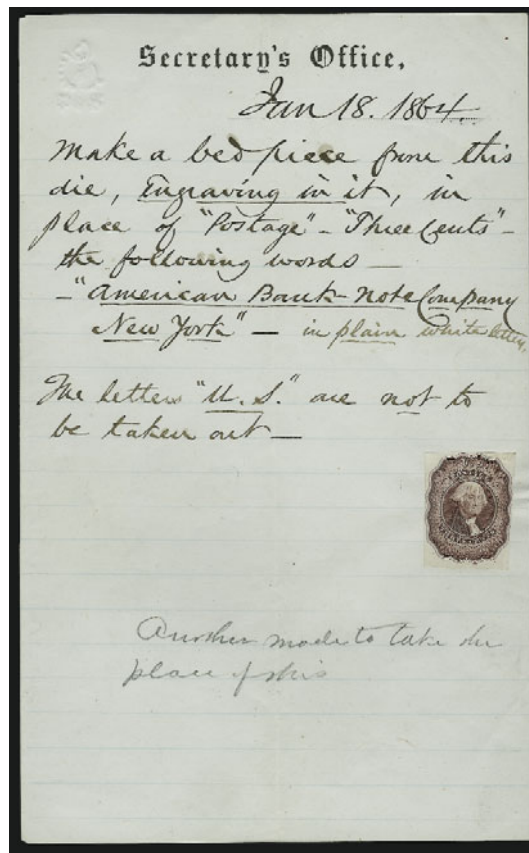 Secretary's Office,
Jan 18. 1864.
Make a bed piece from this
die, Engraving in it, in
place of "Postage" - "Three Cents" -
the following words —
- "American Bank Note Company
New York" — in plain white letters.
The letters "U. S." are not to
be taken out —
Another made to take the
place of this